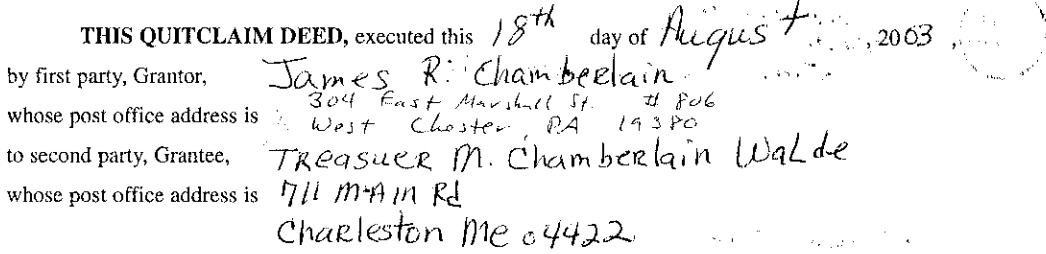 THIS QUITCLAIM DEED, executed this 18th day of August, 2003,
by first party, Grantor, James R. Chamberlain
whose post office address is 304 East Marshall St. # 806
West Chester, PA 19380
to second party, Grantee, TReasueR M. Chamberlain Walde
whose post office address is 711 MAIn Rd
ChaRleston Me 04422